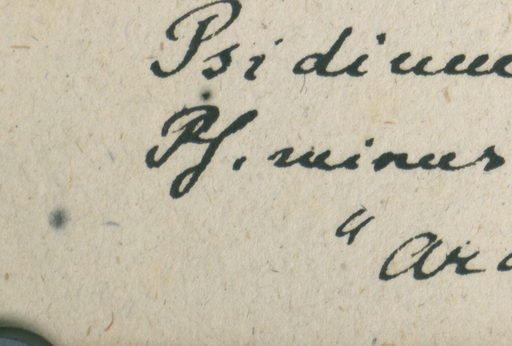 Psidium
Ps. minus
" Ara